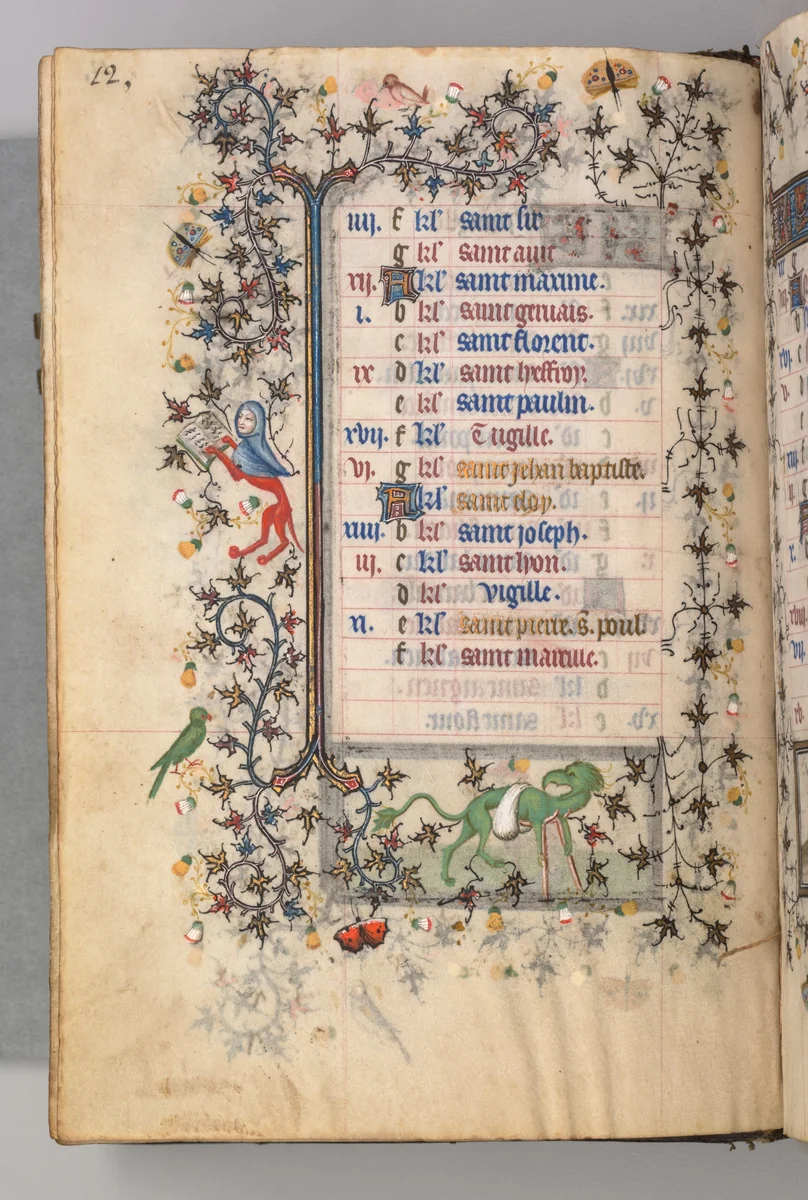 12,
iiij. f kl' saint sir
g kl' saint auit
xij. A kl' saint maxime.
i. b kl' saint geruais.
c kl' saint florent.
ix d kl' saint lyeffroy.
e kl' saint paulin.
xvij. f kl' vigille.
vj. g kl' saint jehan baptiste.
A kl' saint eloy.
xiiij. b kl' saint joseph.
iij. c kl' saint lyon.
d kl' vigille.
xi. e kl' saint pierre. s. poul.
f kl' saint marcille.